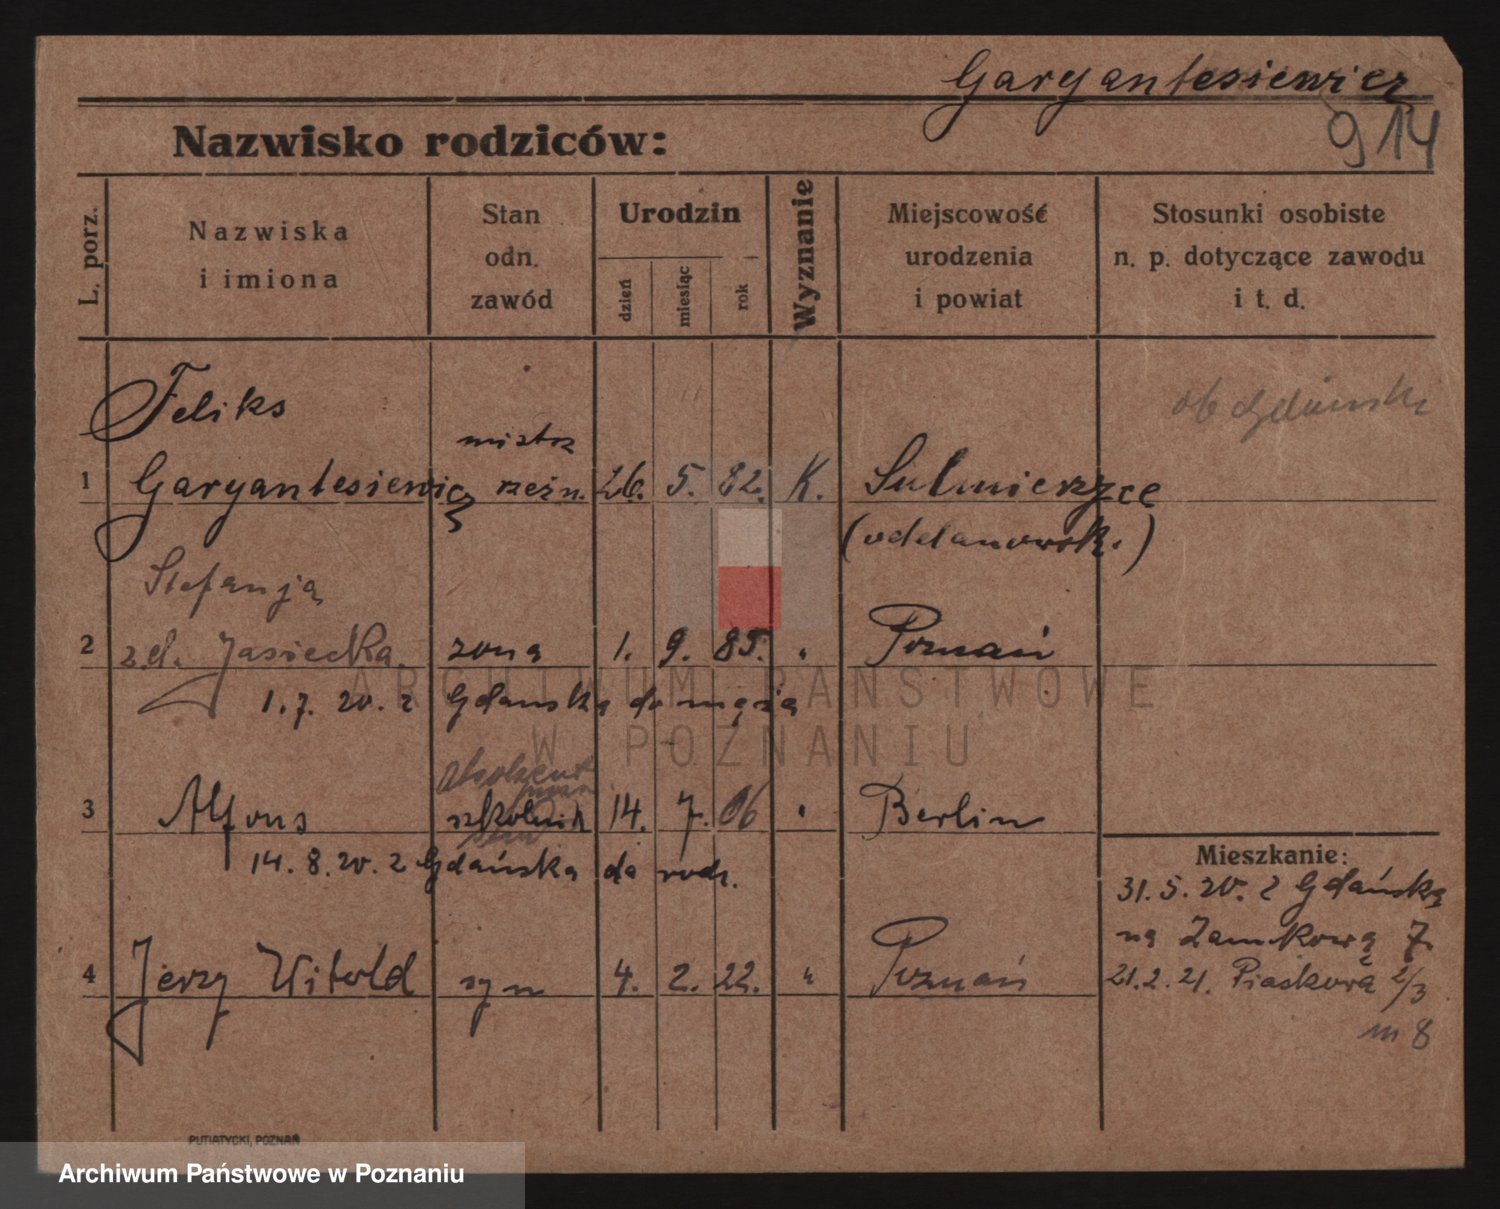 Garyantesiewicz
914
Nazwisko rodziców:
L. porz.
Nazwiska
i imiona
Stan
odn.
zawód
Urodzin
dzień
miesiąc
rok
Wyznanie
Miejscowość
urodzenia
i powiat
Stosunki osobiste
n. p. dotyczące zawodu
i t. d.
Feliks
ob Gdański
mistrz
1 Garyantesiewicz rzeźn. 26. 5. 82. K. Sulmierzyce
(odolanowsk.)
Stefanja
2 z.d. Jasiecka. żona 1. 9. 85. " Poznań
1.7.20. z Gdańska do męża
ARCHIWUM PAŃSTWOWE
W POZNANIU
absolwent
3 Alfons szkolnik 14. 7. 06 " Berlin
14.8.20. z Gdańska do rodz.
Mieszkanie:
31.5.20. z Gdańska
na Zamkową 7.
4 Jerzy Witold syn 4. 2. 22. " Poznań
21.2.21. Piaskowa 2/3
m 8
PUTIATYCKI, POZNAŃ
Archiwum Państwowe w Poznaniu